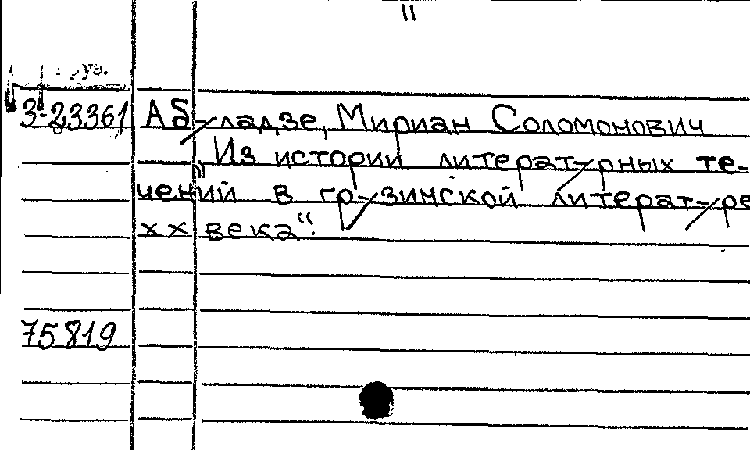 З-23361 Абуладзе, Мириан Соломонович
„Из истории литературных те-
чений в грузинской литературе
XX века“.
75819